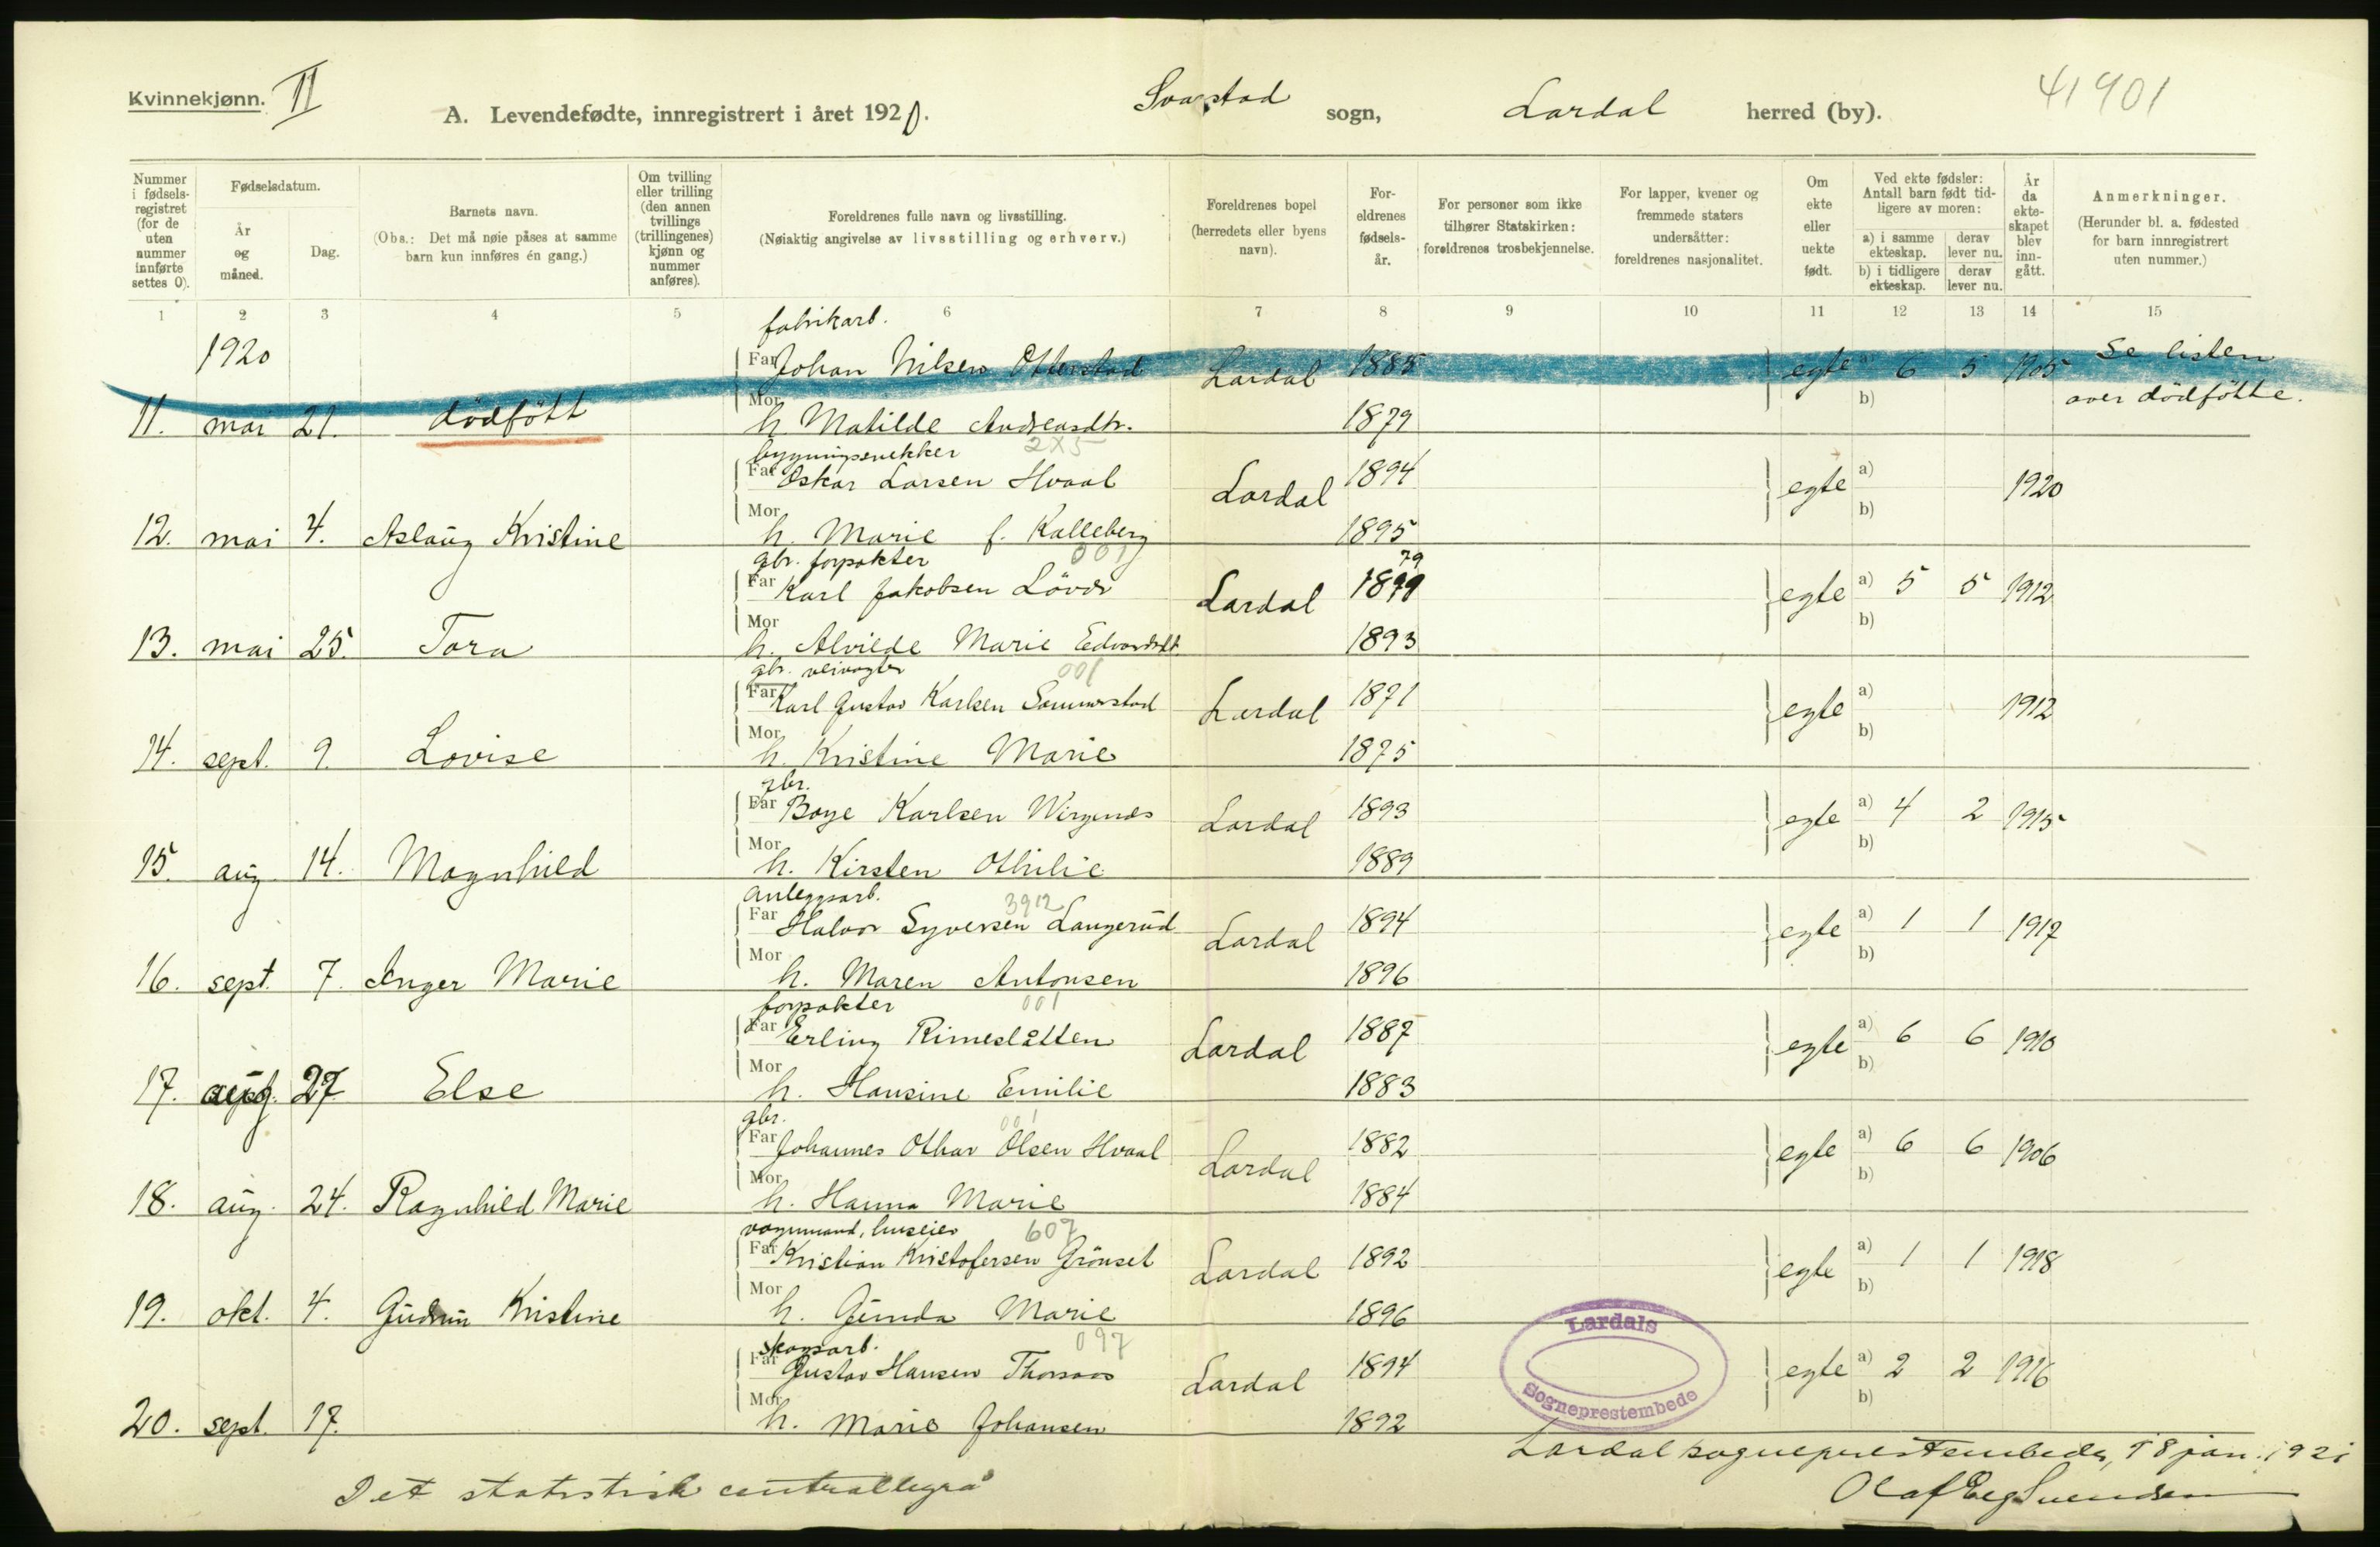 Kvinnekjønn. II
A. Levendefødte, innregistrert i året 1920. Svarstad sogn, Lardal herred (by). 41901
Nummer i fødsels-registret (for de uten nummer innførte settes 0).
Fødselsdatum.
År og måned.
Dag.
Barnets navn.
(Obs.: Det må nøie påses at samme barn kun innføres én gang.)
Om tvilling eller trilling (den annen tvillings (trillingenes) kjønn og nummer anføres).
Foreldrenes fulle navn og livsstilling.
(Nøiaktig angivelse av livsstilling og erhverv.)
Foreldrenes bopel (herredets eller byens navn).
For-eldrenes fødsels-år.
For personer som ikke tilhører Statskirken: foreldrenes trosbekjennelse.
For lapper, kvener og fremmede staters undersåtter: foreldrenes nasjonalitet.
Om ekte eller uekte født.
Ved ekte fødsler: Antall barn født tid-ligere av moren:
a) i samme ekteskap. derav lever nu.
b) i tidligere ekteskap. derav lever nu.
År da ekte-skapet blev inn-gått.
Anmerkninger.
(Herunder bl. a. fødested for barn innregistrert uten nummer.)
1 2 3 4 5 6 7 8 9 10 11 12 13 14 15
1920
fabrikarb.
Far Johan Nilsen Otterstad Lardal 1885 egte a) 6 5 1905 Se listen
over dödfötte.
11. mai 21. dödfött Mor h. Matilde Andreasdtr. 1879 b)
bygningsnekker 2x5
Far Oskar Larsen Hvaal Lardal 1894 egte a) 1920
12. mai 4. Aslaug Kristine Mor h. Marie f. Kalleberg 1895 b)
gbr. forpakter 001
79
Far Karl Jakobsen Lövds Lardal 1879 egte a) 5 5 1912
13. mai 25. Tora Mor h. Alvilde Marie Edvardsdt. 1893 b)
gbr. veivogter 001
Far Karl Gustav Karlsen Sommerstad Lardal 1871 egte a) 1912
14. sept. 9. Lovise Mor h. Kristine Marie 1875 b)
gbr.
Far Boye Karlsen Lardal 1893 egte a) 4 2 1915
15. aug. 14. Magnhild Mor h. Kirsten Othilie 1889 b)
anleggsarb. 3912
Far Halvor Syversen Langerud Lardal 1894 egte a) 1 1 1917
16. sept. 7. Inger Marie Mor h. Maren Antonsen 1896 b)
forpakter 001
Far Erling Rimeslåtten Lardal 1887 egte a) 6 6 1910
17. 27 Else Mor h. Hansine Emilie 1883 b)
gbr. 001
Far Johannes Othar Olsen Hvaal Lardal 1882 egte a) 6 6 1906
18. aug. 24. Ragnhild Marie Mor h. Hanna Marie 1884 b)
vognmand, huseier 607
Far Kristian Kristofersen Grönset Lardal 1892 egte a) 1 1 1918
19. okt. 4. Gudrun Kristine Mor h. Gunda Marie 1896 b)
skogsarb. 097
Far Gustav Hansen Thorsaas Lardal 1894 egte a) 2 2 1916
20. sept. 17. Mor h. Marie Johansen 1892 b)
Lardals Sogneprestembede
Lardal sogneprestembede, 18 jan. 1921
Det statistisk centralbyrå
Olaf Eeg Svendsen